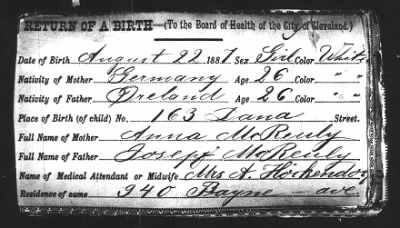 RETURN OF A BIRTH—(To the Board of Health of the City of Cleveland.)
Date of Birth August 22 1887 Sex Girl Color White
Nativity of Mother Germany Age 26 Color " "
Nativity of Father Oreland Age 26 Color " "
Place of Birth (of child) No. 163 Dana Street.
Full Name of Mother Anna McReuly
Full Name of Father Josepf McReuly
Name of Medical Attendant or Midwife Mrs A. Hockendorf
Residence of same 940 Bayne ave